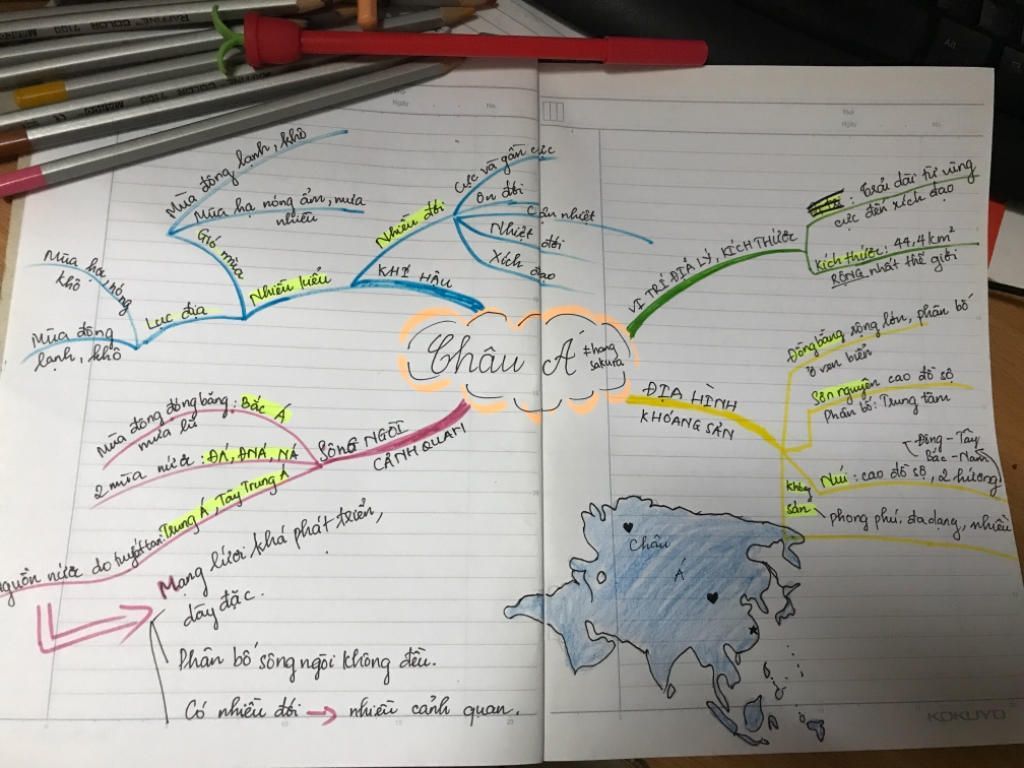 Châu Á
#hang
sakura
KHÍ HẬU
Nhiều đới
Cực và gần cực
Ôn đới
Cận nhiệt
Nhiệt đới
Xích đạo
Nhiều kiểu
Gió mùa
Mùa đông lạnh, khô
Mùa hạ nóng ẩm, mưa
nhiều
Lục địa
Mùa hạ, nóng
khô
Mùa đông
lạnh, khô
VỊ TRÍ ĐỊA LÝ, KÍCH THƯỚC
: Trải dài từ vùng
cực đến xích đạo
Kích thước: 44,4 km²
RỘNG nhất thế giới
ĐỊA HÌNH
KHOÁNG SẢN
Đồng bằng rộng lớn, phân bố
ở ven biển
Sơn nguyên cao đồ sộ
Phân bố: Trung tâm
Núi: cao đồ sộ, 2 hướng
Đông - Tây
Bắc - Nam
Khoáng
sản
phong phú, đa dạng, nhiều
SÔNG NGÒI
CẢNH QUAN
Mùa đông đóng băng: Bắc Á
mưa lũ
2 mùa nước: ĐÁ, ĐNÁ, NÁ
nguồn nước do tuyết tan: Trung Á, Tây Trung Á
Mạng lưới khá phát triển,
dày đặc.
Phân bố sông ngòi không đều.
Có nhiều đới → nhiều cảnh quan.
Châu
Á
KOKUYO